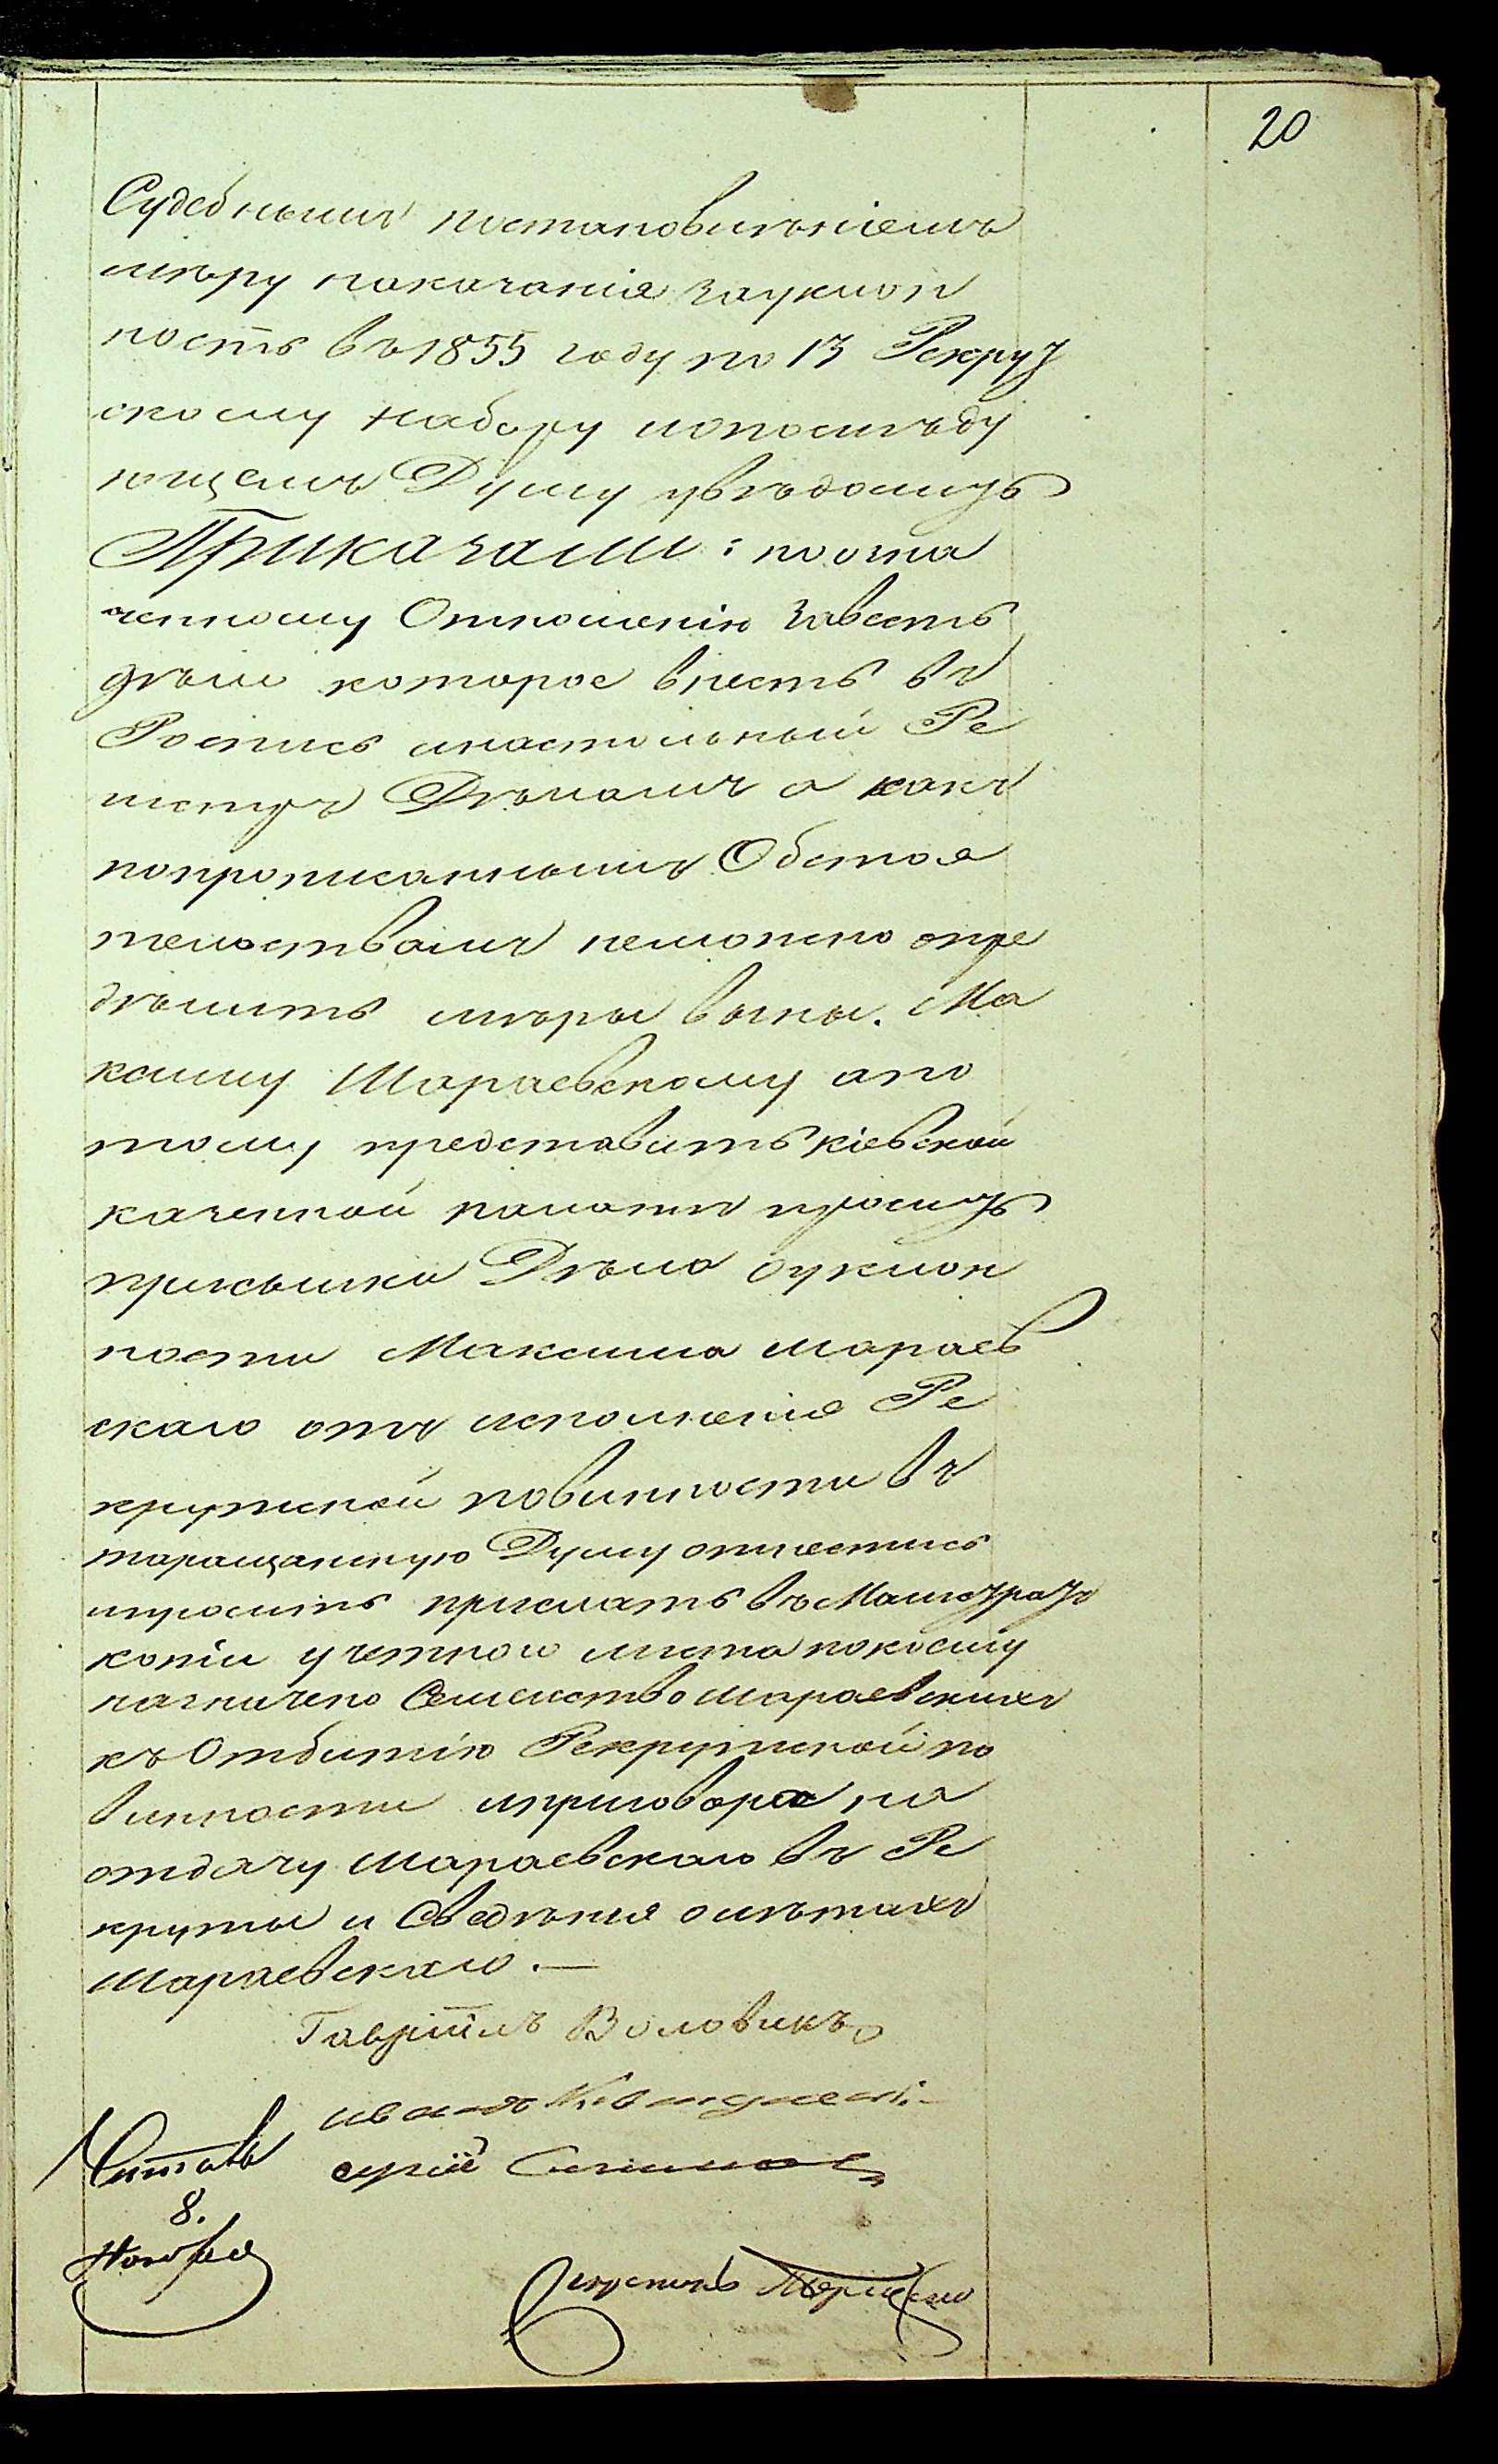 20
Судебнымъ постановилѣніемъ
мѣру наказанія зауклон
ность въ 1855 году по 13 Рекрут
скому набору ипопослѣду
ющемъ Думу увѣдомить
Приказали: поозна
ченному Отношенію Завесть
дѣло которое внесть въ
Роспись инастольный Ре
истръ Дѣламъ а какъ
попрописаннымъ Обстоя
тельствамъ неможно опре
дѣлить мѣры вины. Ма
ксиму Шараевскому апо
тому представить кіевской
казенной палатѣ просить
присылки Дѣла оуклон
ности Максима Шараев
скаго отъ исполненія Ре
крутской повинности въ
таращанскую Думу отнестись
ипросить прислать въ Магистратъ
копіи учетного листа покоему
назначено Семейство Шараевскихъ
къ Отбитію Рекрутской по
винности иприговора на
отдачу Шараевскаго въ Ре
круты и Сведѣнія олѣтахъ
Шараевскаго.—
Гавріилъ Воловикъ
иванъ
Читалъ
8.
Ноября